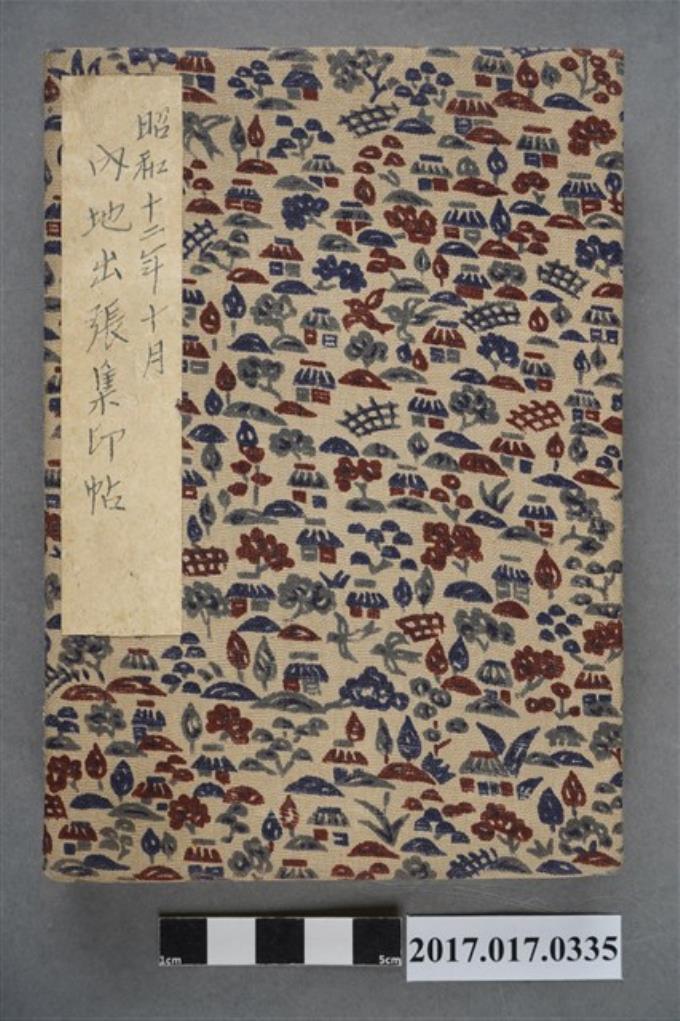 昭和十二年十月
内地出張集印帖
1cm
5cm
2017.017.0335